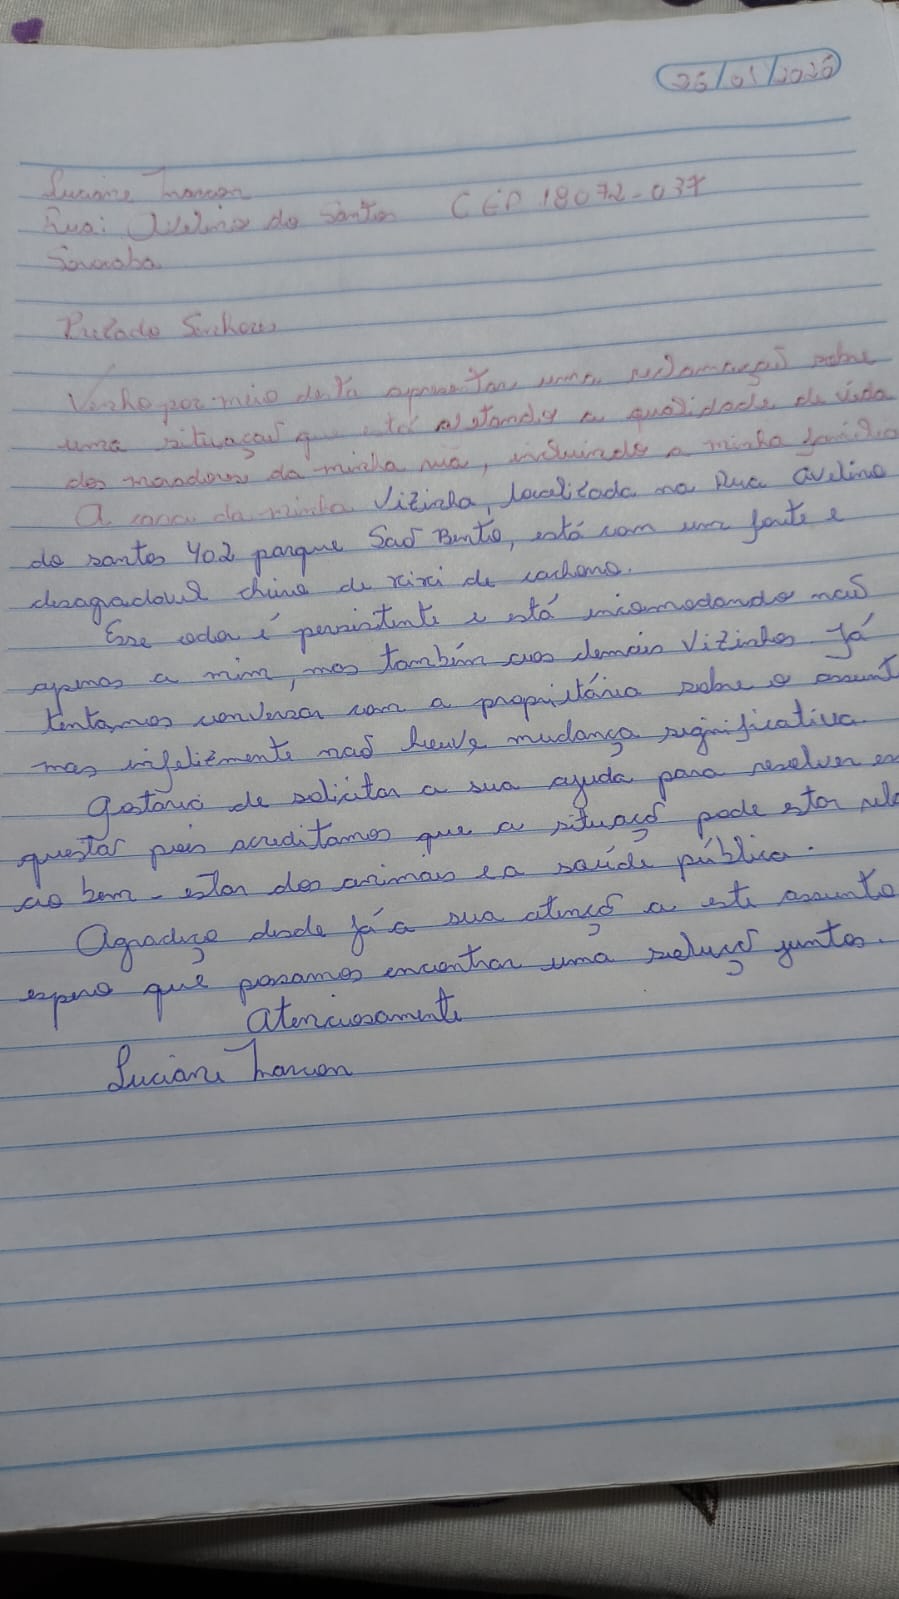 26/01/2026
Luciane Marcon
Rua: Avelino do Santos CEP 18072-037
Sorocaba
Prezado Senhores,
Venho por meio desta apresentar uma reclamação sobre
uma situação que está afetando a qualidade de vida
dos moradores da minha rua, incluindo a minha família
A casa da minha Vizinha, localizada na Rua Avelino
do santos 402 parque Saõ Bento, está com um forte e
desagradavel cheiro de xixi de cachorro.
Esse odor é persistente e está incomodando naõ
apenas a mim, mas também aos demais Vizinhos. Já
tentamos conversar com a proprietária sobre o assunt
mas infelizmente naõ houve mudança significativa.
Gostaria de solicitar a sua ajuda para resolver es
questaõ pois acreditamos que a situaçõ pode estar rela
ao bem-estar dos animais e a saúde pública.
Agradeço desde já a sua atençõ a este assunto
espero que possamos encontrar uma soluçõ juntos.
Atenciosamente
Luciane Marcon